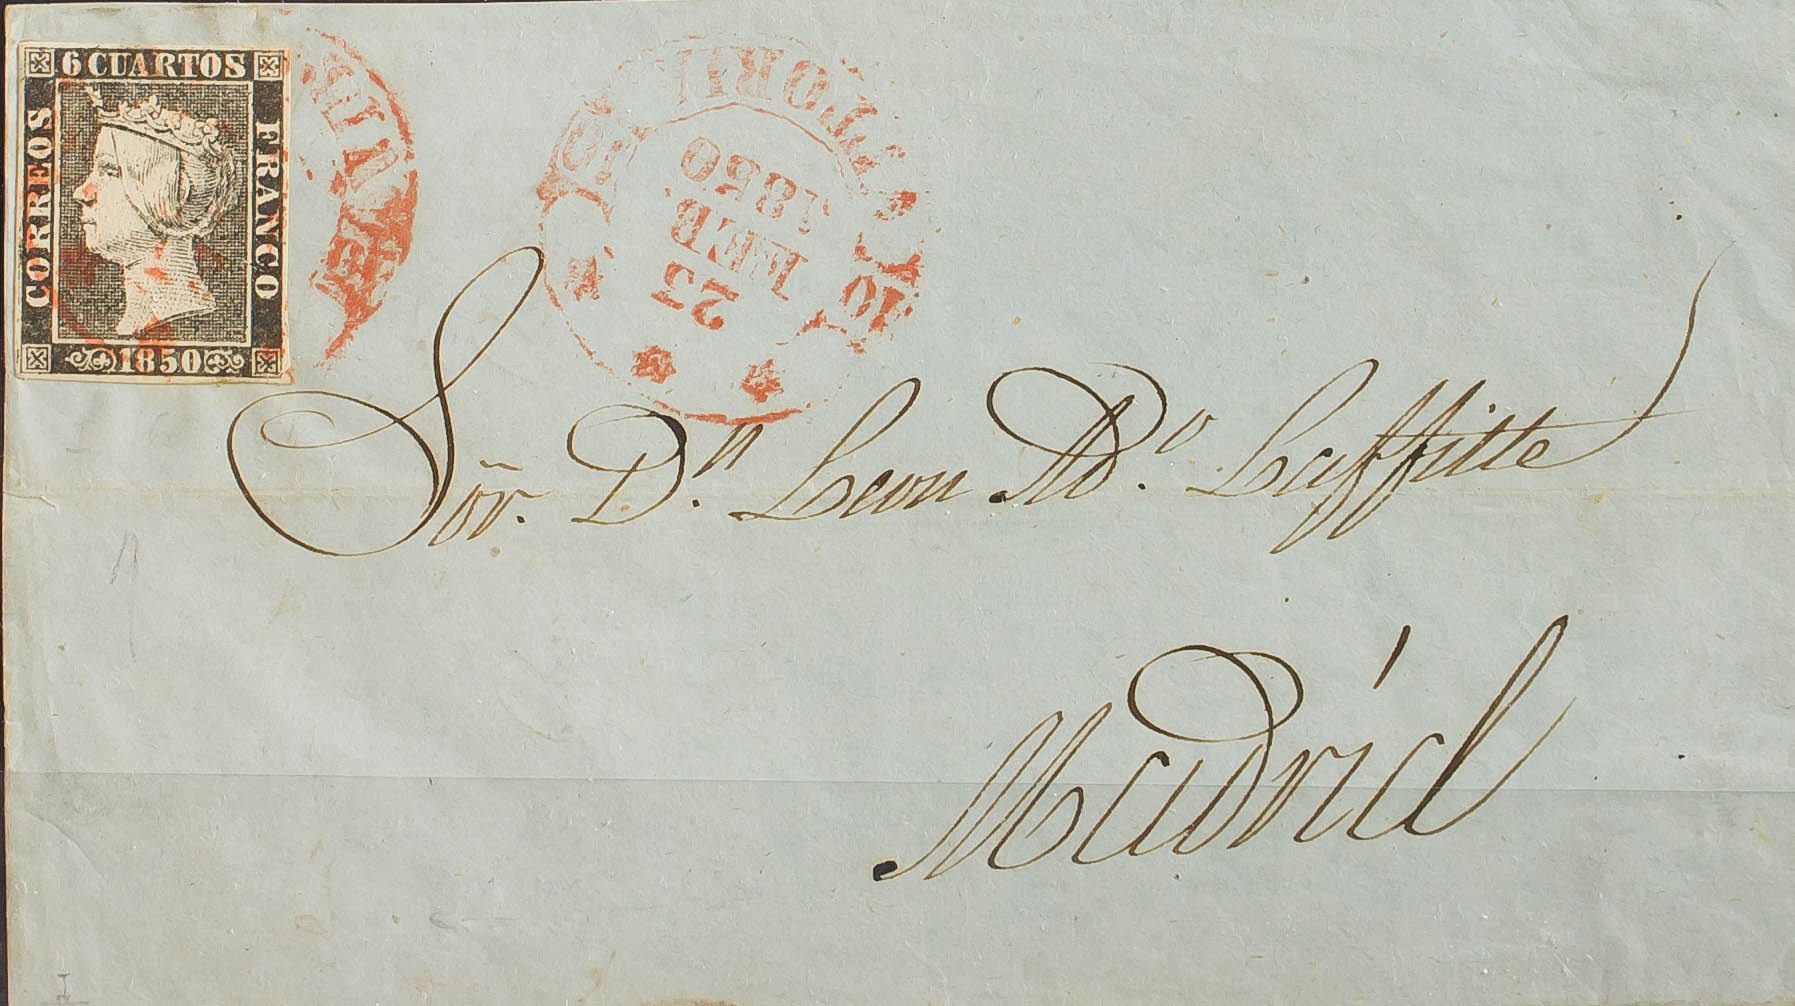 6 CUARTOS
CORREOS
FRANCO
1850
VITORIA
10
10
23
FEB.
1850
Sor. Dn. Leon Ado. Laffitte
Madrid